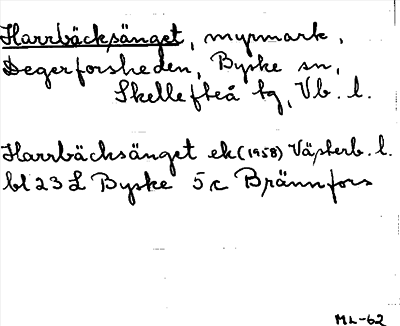 Harrbäcksänget, myrmark,
Degerforsheden, Byske sn,
Skellefteå tg, Vb. l.
Harrbäcksänget ek (1958) Västerb. l.
bl 23 L Byske 5 c Brännfors
ML-62